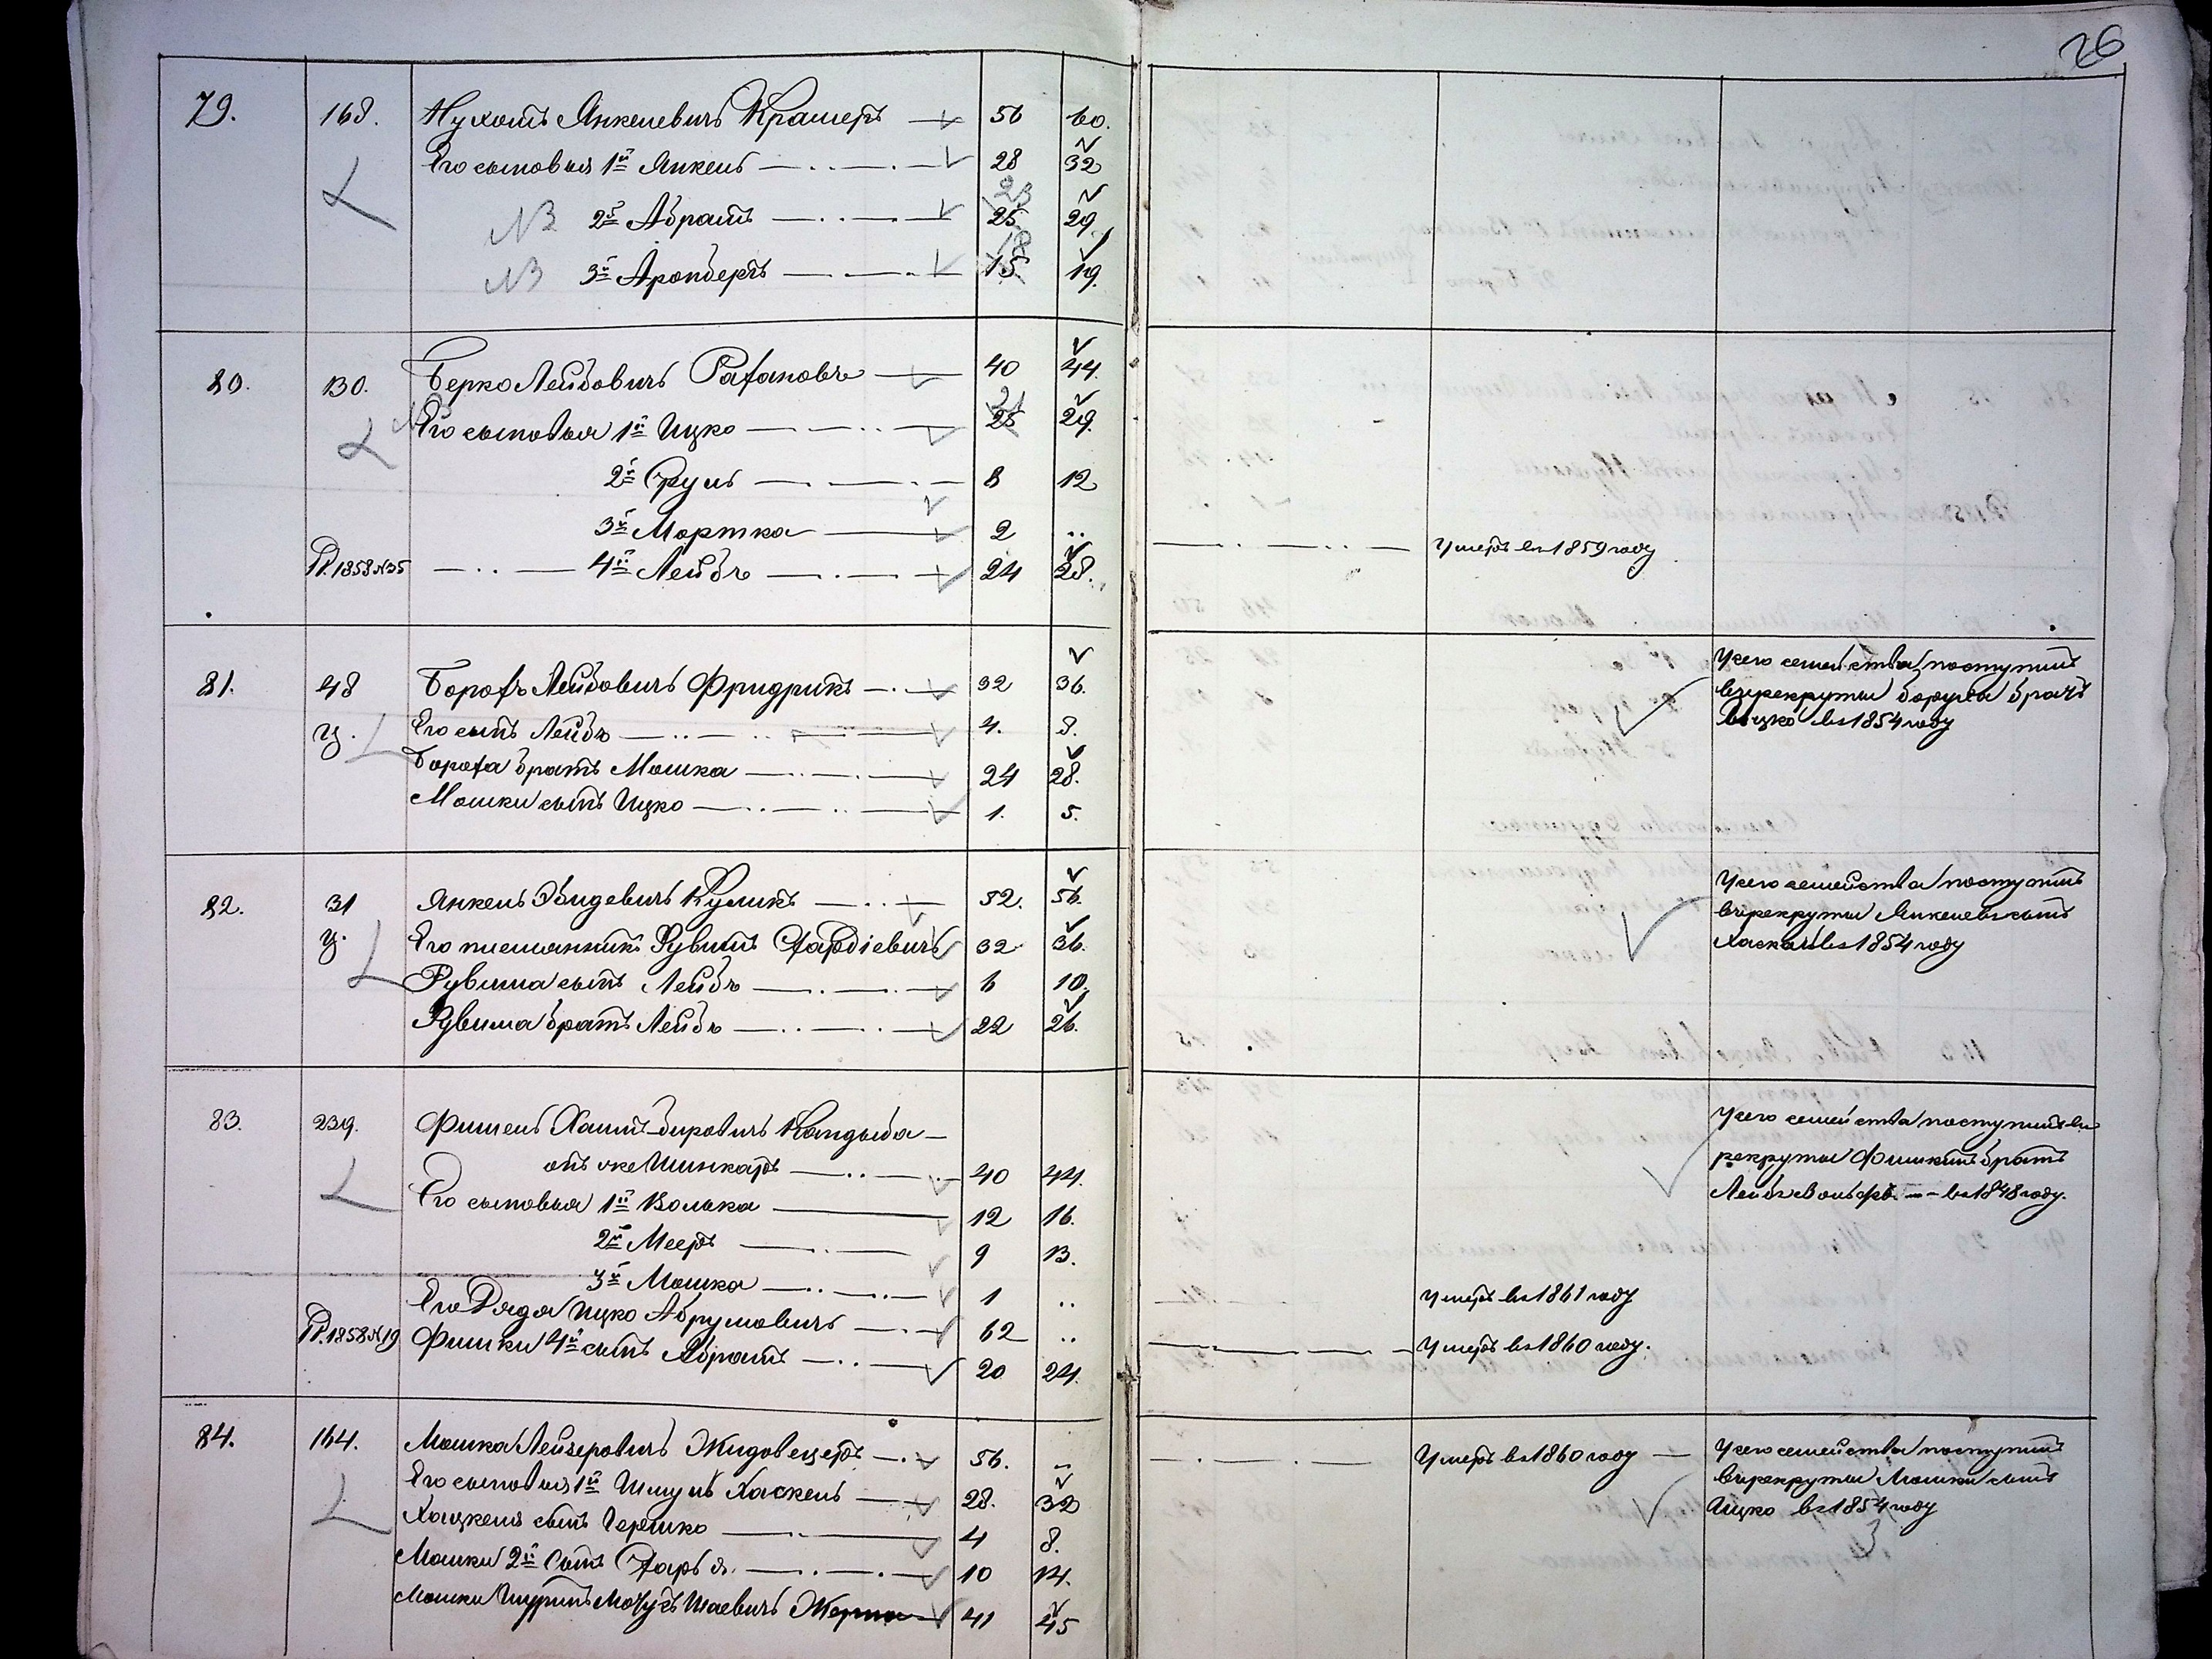 26
79. 168. Нухомъ Янкелевичъ Крамеръ 56 60.
Его сыновья 1й Янкель 28 32
23
NB 2й Абрамъ 25 29.
18
NB 3й Аронберъ 15 19.
80. 130. Берко Лейбовичъ 40 44.
21
Его сыновья 1й Ицко 25 29.
2й Сруль 8 12
3й Мортка 2 ..
Умеръ въ 1859 году
Р. 1858 N35 4й Лейбъ 24 28.
81. 48 Борохъ Лейбовичъ Фридрикъ 32 36.
Изъ сего семейства поступилъ
въ рекруты Боруха братъ
Ицко въ 1854 году
ц. Его сынъ Лейбъ 4. 8.
Бороха братъ Мошка 24 28.
Мошки сынъ Ицко 1. 5.
82. 31 Янкель Куликъ 52. 56.
Изъ сего семейства поступилъ
въ рекруты Янкелевъ сынъ
Хаскель въ 1854 году
ц. Его племянникъ Рувимъ 32 36.
Рувима сынъ Лейбъ 6 10.
Рувима братъ Лейбъ 22 26.
83. 239. Фишель Хаимъ-Беровичъ Кандыба
онъ же Шинкаръ 40 44.
Изъ сего семейства поступилъ въ
рекруты Фишкинъ братъ
Лейба въ 1848 году.
Его сыновья 1й Волька 12 16.
2й Мееръ 9 13.
3й Мошка 1 ..
Умеръ въ 1861 году
Его дядя Ицко Абрумовичъ 62 ..
Умеръ въ 1860 году.
Р. 1858 N19 Фишки 4й сынъ Абрамъ 20 24.
84. 164. Мошка Лейзеровичъ Жидовецеръ 56. ..
Умеръ въ 1860 году
Изъ сего семейства поступилъ
въ рекруты Мошки сынъ
Ицко въ 1854 году
3
Его сыновья 1й Шмуль Хаскель 28. 32
Хацкеля сынъ Гершко 4 8.
Мошки 2й сынъ 10 14.
Мошки Шуринъ Шаевичъ 41 45